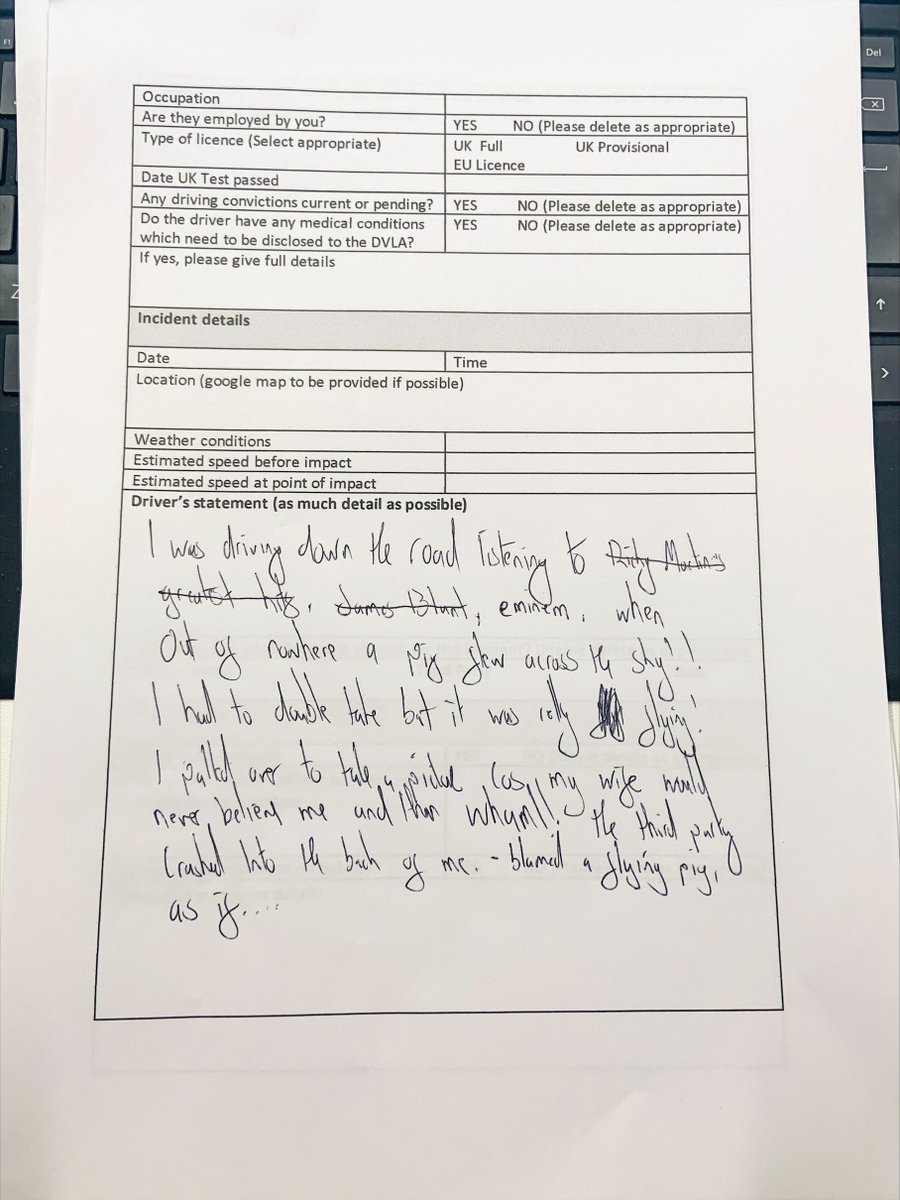 Occupation
Are they employed by you? YES NO (Please delete as appropriate)
Type of licence (Select appropriate) UK Full UK Provisional
EU Licence
Date UK Test passed
Any driving convictions current or pending? YES NO (Please delete as appropriate)
Do the driver have any medical conditions YES NO (Please delete as appropriate)
which need to be disclosed to the DVLA?
If yes, please give full details
Incident details
Date Time
Location (google map to be provided if possible)
Weather conditions
Estimated speed before impact
Estimated speed at point of impact
Driver's statement (as much detail as possible)
I was driving down the road listening to Ricky Martin's
greatest hits, James Blunt, eminem, when
out of nowhere a pig flew across the sky!!
I had to double take but it was really flying!
I pulled over to take a picture cos my wife would
never believe me and then wham!! the third party
crashed into the back of me. - blamed a flying pig,
as if....
Del
F1
Z